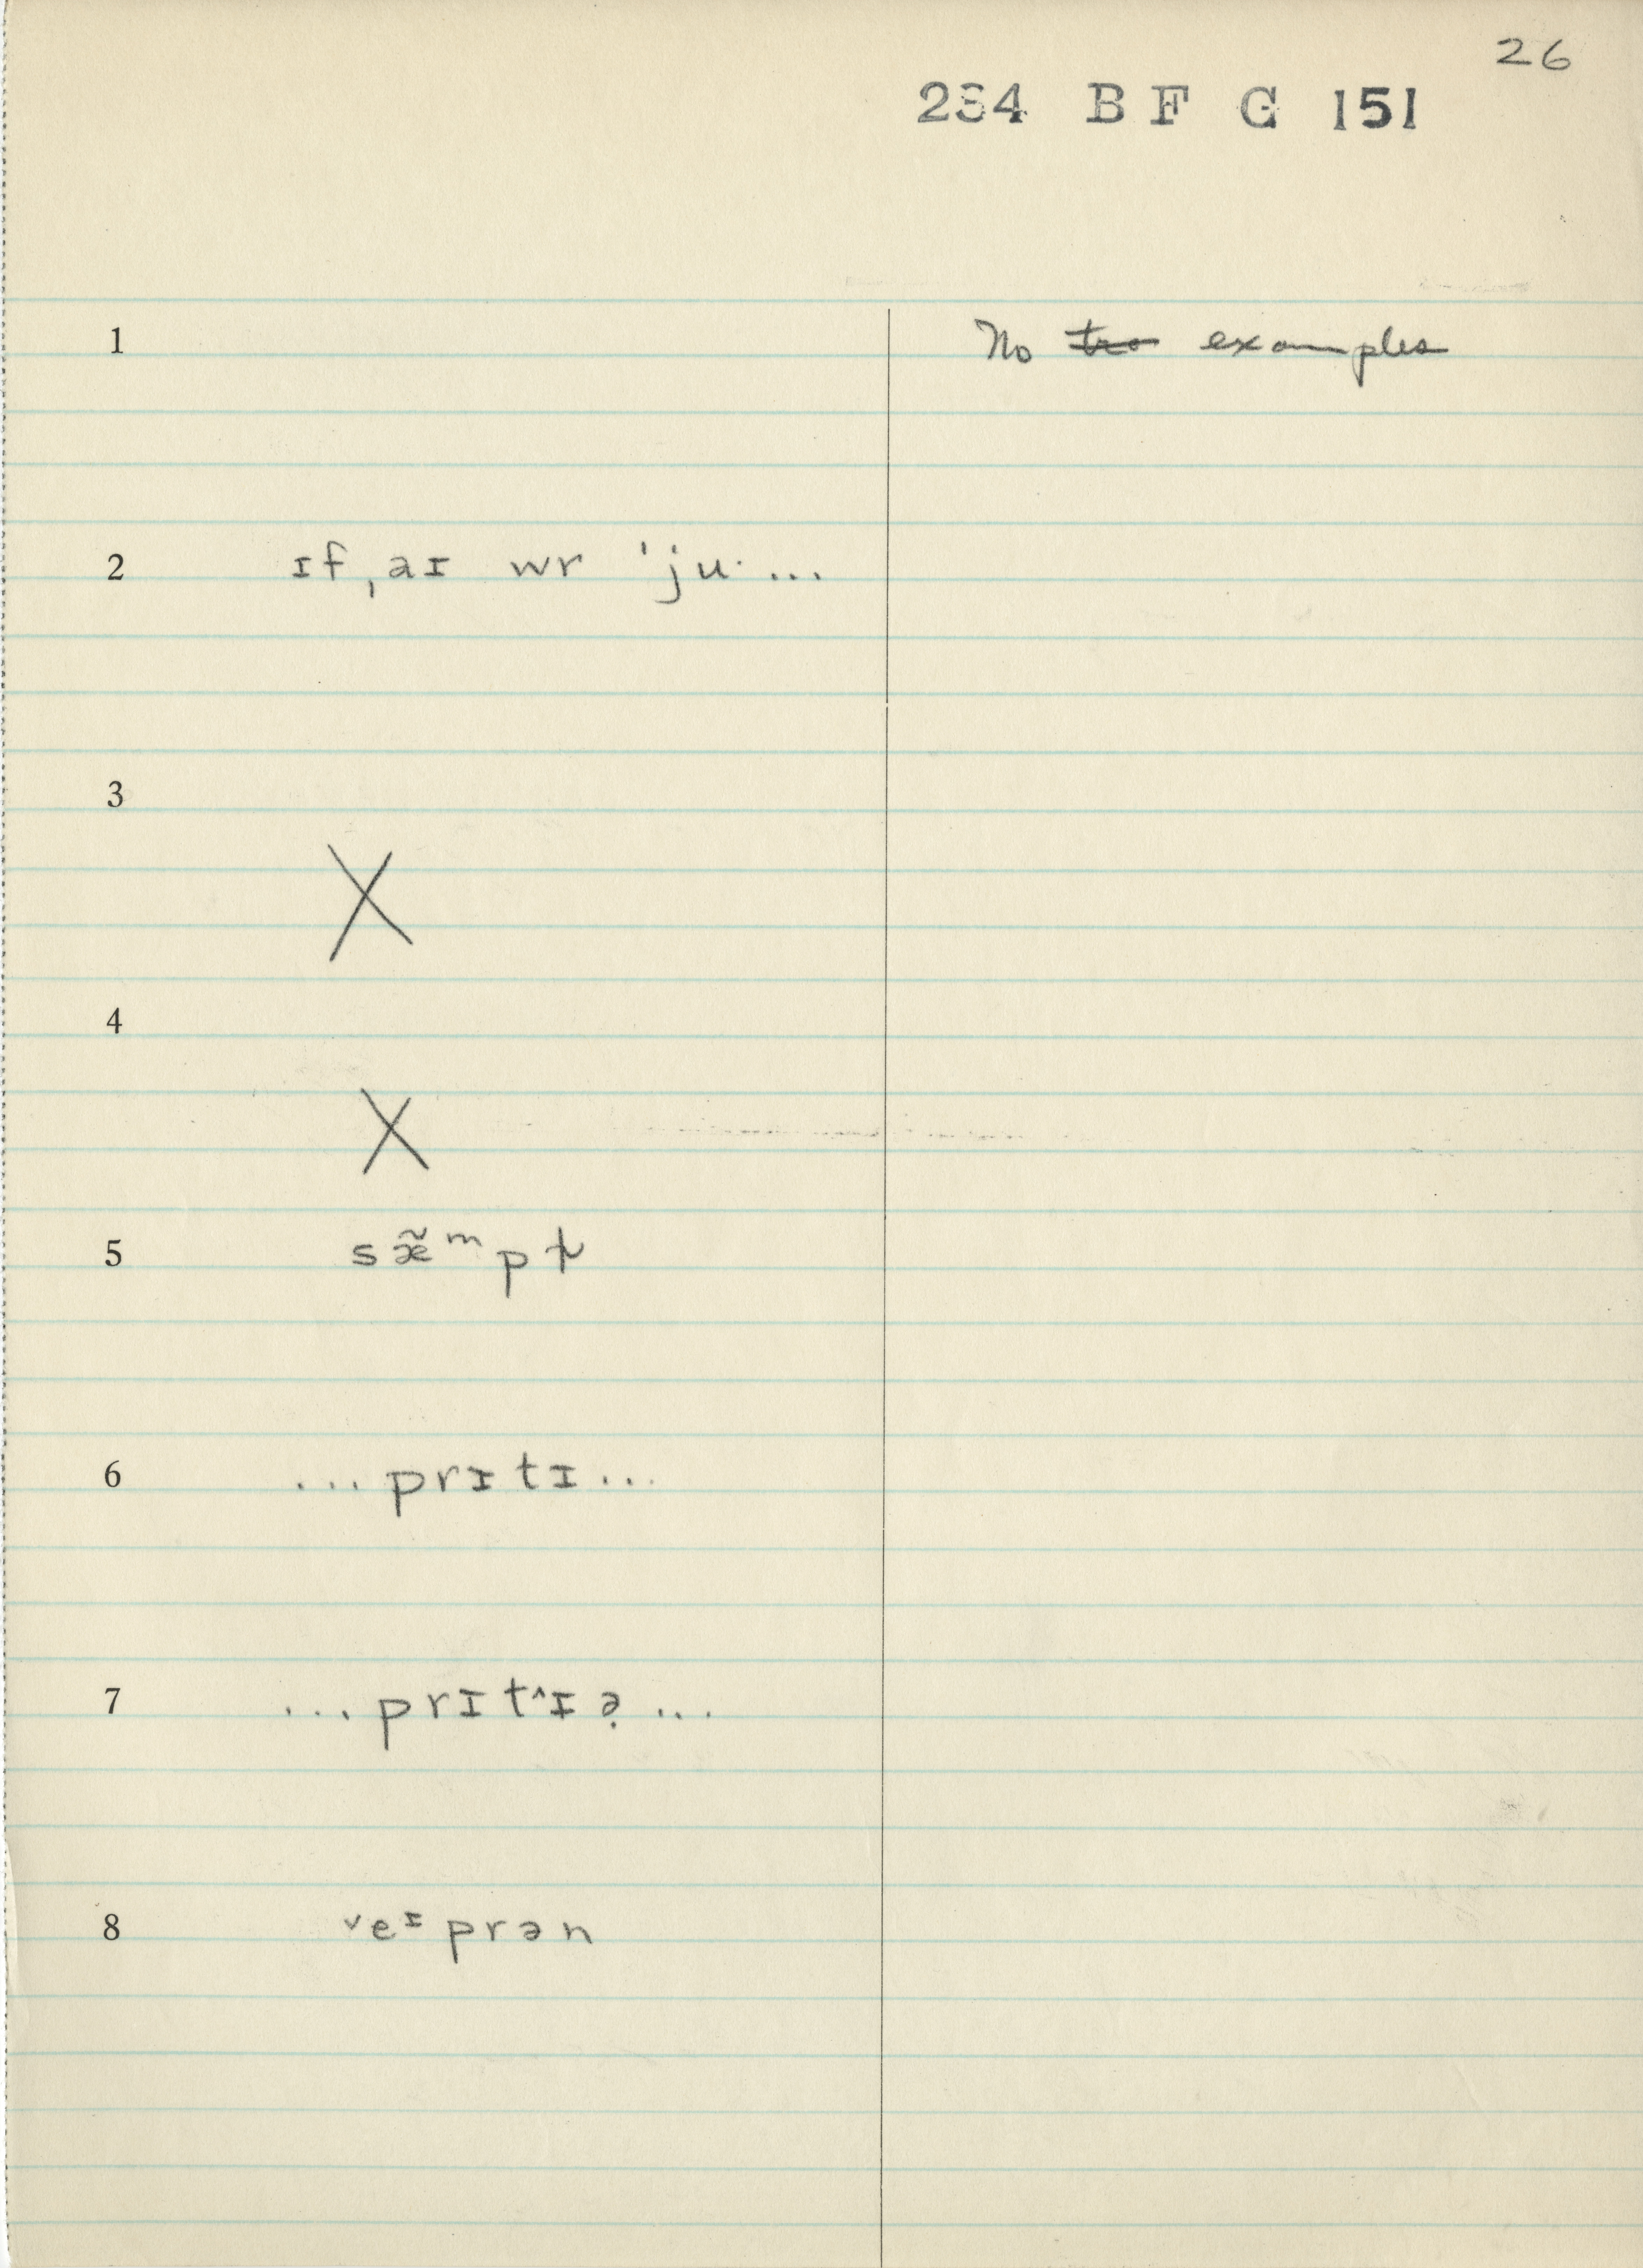 26
234 B F G 151
1 No tra examples
2 ɪf ˌaɪ wr ˈju· ...
3
X
4
X
5 sæ̃ᵐpɫ
6 ...prɪtɪ...
7 ...prɪt^ɪə̣...
8 ˇeᶦprən